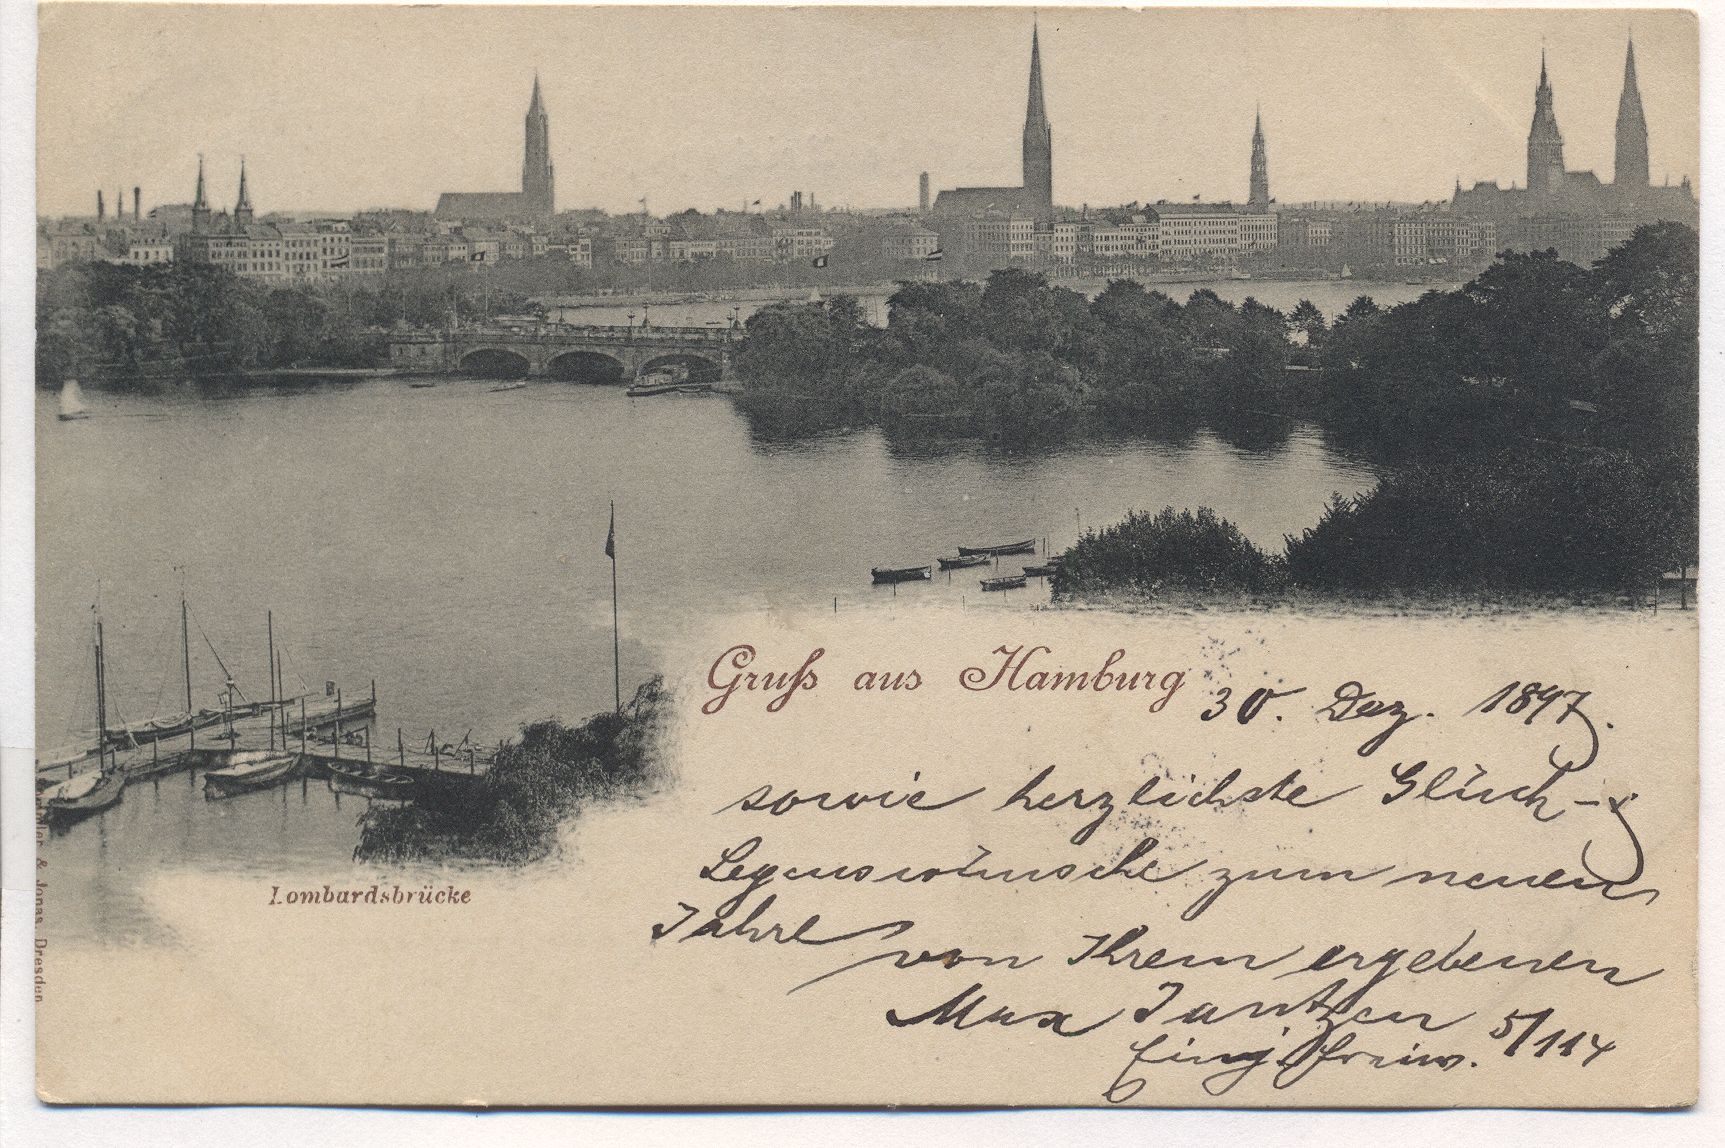 Gruſs aus Hamburg
30. Dez. 1897.
sowie herzlichste Glück- &
Segenswünsche zum neuen
Jahre
von Ihrem ergebenen
Max Jantzen
Einj. freiw. 5/114
Lombardsbrücke
& Jonas, Dresden